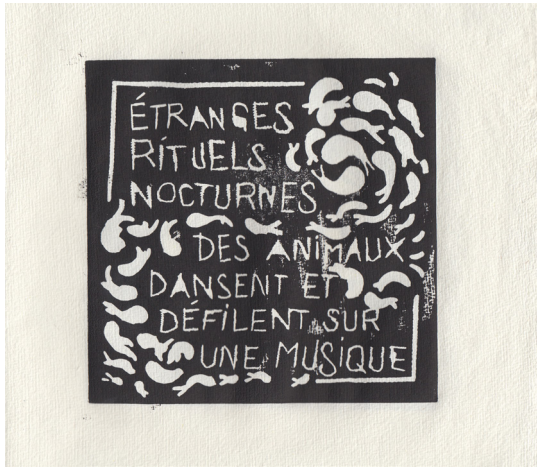 ÉTRANGES
RITUELS
NOCTURNES
DES ANIMAUX
DANSENT ET
DÉFILENT SUR
UNE MUSIQUE